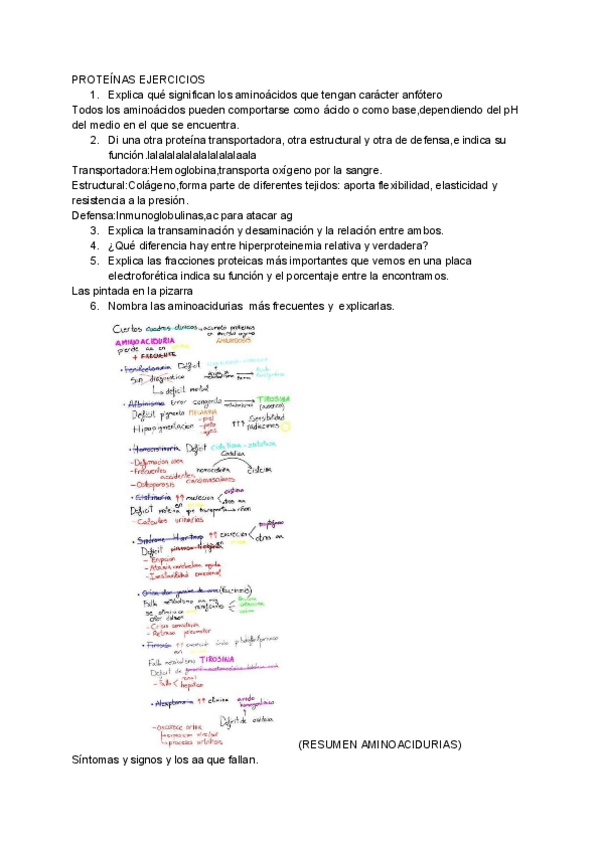 PROTEÍNAS EJERCICIOS
1. Explica qué significan los aminoácidos que tengan carácter anfótero
Todos los aminoácidos pueden comportarse como ácido o como base,dependiendo del pH
del medio en el que se encuentra.
2. Di una otra proteína transportadora, otra estructural y otra de defensa,e indica su
función.lalalalalalalalalalalaala
Transportadora:Hemoglobina,transporta oxígeno por la sangre.
Estructural:Colágeno,forma parte de diferentes tejidos: aporta flexibilidad, elasticidad y
resistencia a la presión.
Defensa:Inmunoglobulinas,ac para atacar ag
3. Explica la transaminación y desaminación y la relación entre ambos.
4. ¿Qué diferencia hay entre hiperproteinemia relativa y verdadera?
5. Explica las fracciones proteicas más importantes que vemos en una placa
electroforética indica su función y el porcentaje entre la encontramos.
Las pintada en la pizarra
6. Nombra las aminoacidurias más frecuentes y explicarlas.
Ciertos cuadros clínicos → acumulo proteínas
AMINOACIDURIA
AMILOIDOSIS
pierde aa en
+ FRECUENTE
Fenilcetonuria Déficit
Sin diagnóstico
déficit mental
Albinismo Error congénito TIROSINA
Déficit pigmento MELANINA
Hipopigmentación
-piel
-pelo
-ojos
↑↑↑ Sensibilidad
radiaciones
Homocistinuria Déficit
- Deformación ósea
- Frecuentes accidentes cardiovasculares
homocisteína cisteína
- Osteoporosis
Cistinuria ↑↑ cistina
otros aa
Déficit proteína que transporta riñón
- Cálculos urinarios
Síndrome Hartnup ↑↑ excreción
otros aa
Déficit
- Erupción
- Inestabilidad emocional
Falla metabolismo aa
se elimina
olor
- Crisis convulsivas
- Retraso psicomotor
Falla metabolismo TIROSINA
Déficit de
- Fallo hepático
Alcaptonuria ↑↑ ácido
homogentísico
Déficit de oxidasa
- oscurece orina
(RESUMEN AMINOACIDURIAS)
Síntomas y signos y los aa que fallan.